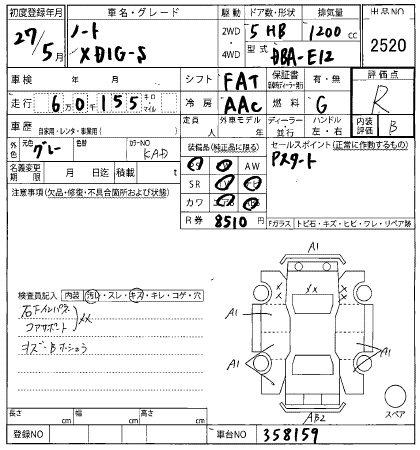 初度登録年月 車名・グレード 駆動 ドア数・形状 排気量 出品NO
27/5月 ノート 2WD・4WD 5 HB 1200 cc 2520
X DIG-S 型式 DBA-E12
車検 年 月 シフト FAT 保証書 有・無 評価点
走行 6万0千155 キロ・マイル 冷房 AAC 燃料 G R
車歴 自家用・レンタ・事業用( ) 定員 人 外車モデル 年 ディーラー・並行 ハンドル 左・右 内装評価 B
外色 元色 グレー 色替 カラーNO KAD 装備品(純正品に限る) セールスポイント(正常に作動するもの)
名義変更期限 月 日迄 積載 t AW Pスタート
注意事項(欠品・修復・不具合箇所および状態) SR
カワ
R券 8510円 Fガラス トビ石・キズ・ヒビ・ワレ・リペア跡
A1
検査員記入 内装 汚レ・スレ・キズ・キレ・コゲ・穴
××
コアサポート
A1 A1
A1 A1
AB2 スペア
長さ cm 幅 cm 高さ cm
登録NO 車台NO 358159